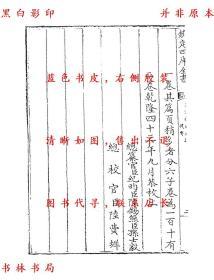 黑白影印
並非原本
欽定四庫全書
蓝色书皮,右侧胶装
清晰如图,售出不退
图书代寻,联系店长
卷其篇頁稍多者分六子卷為一百十有
卷乾隆四十六年九月恭校上
總纂官臣紀昀臣陸錫熊臣孫士毅
總校官臣陸費墀
书林书局